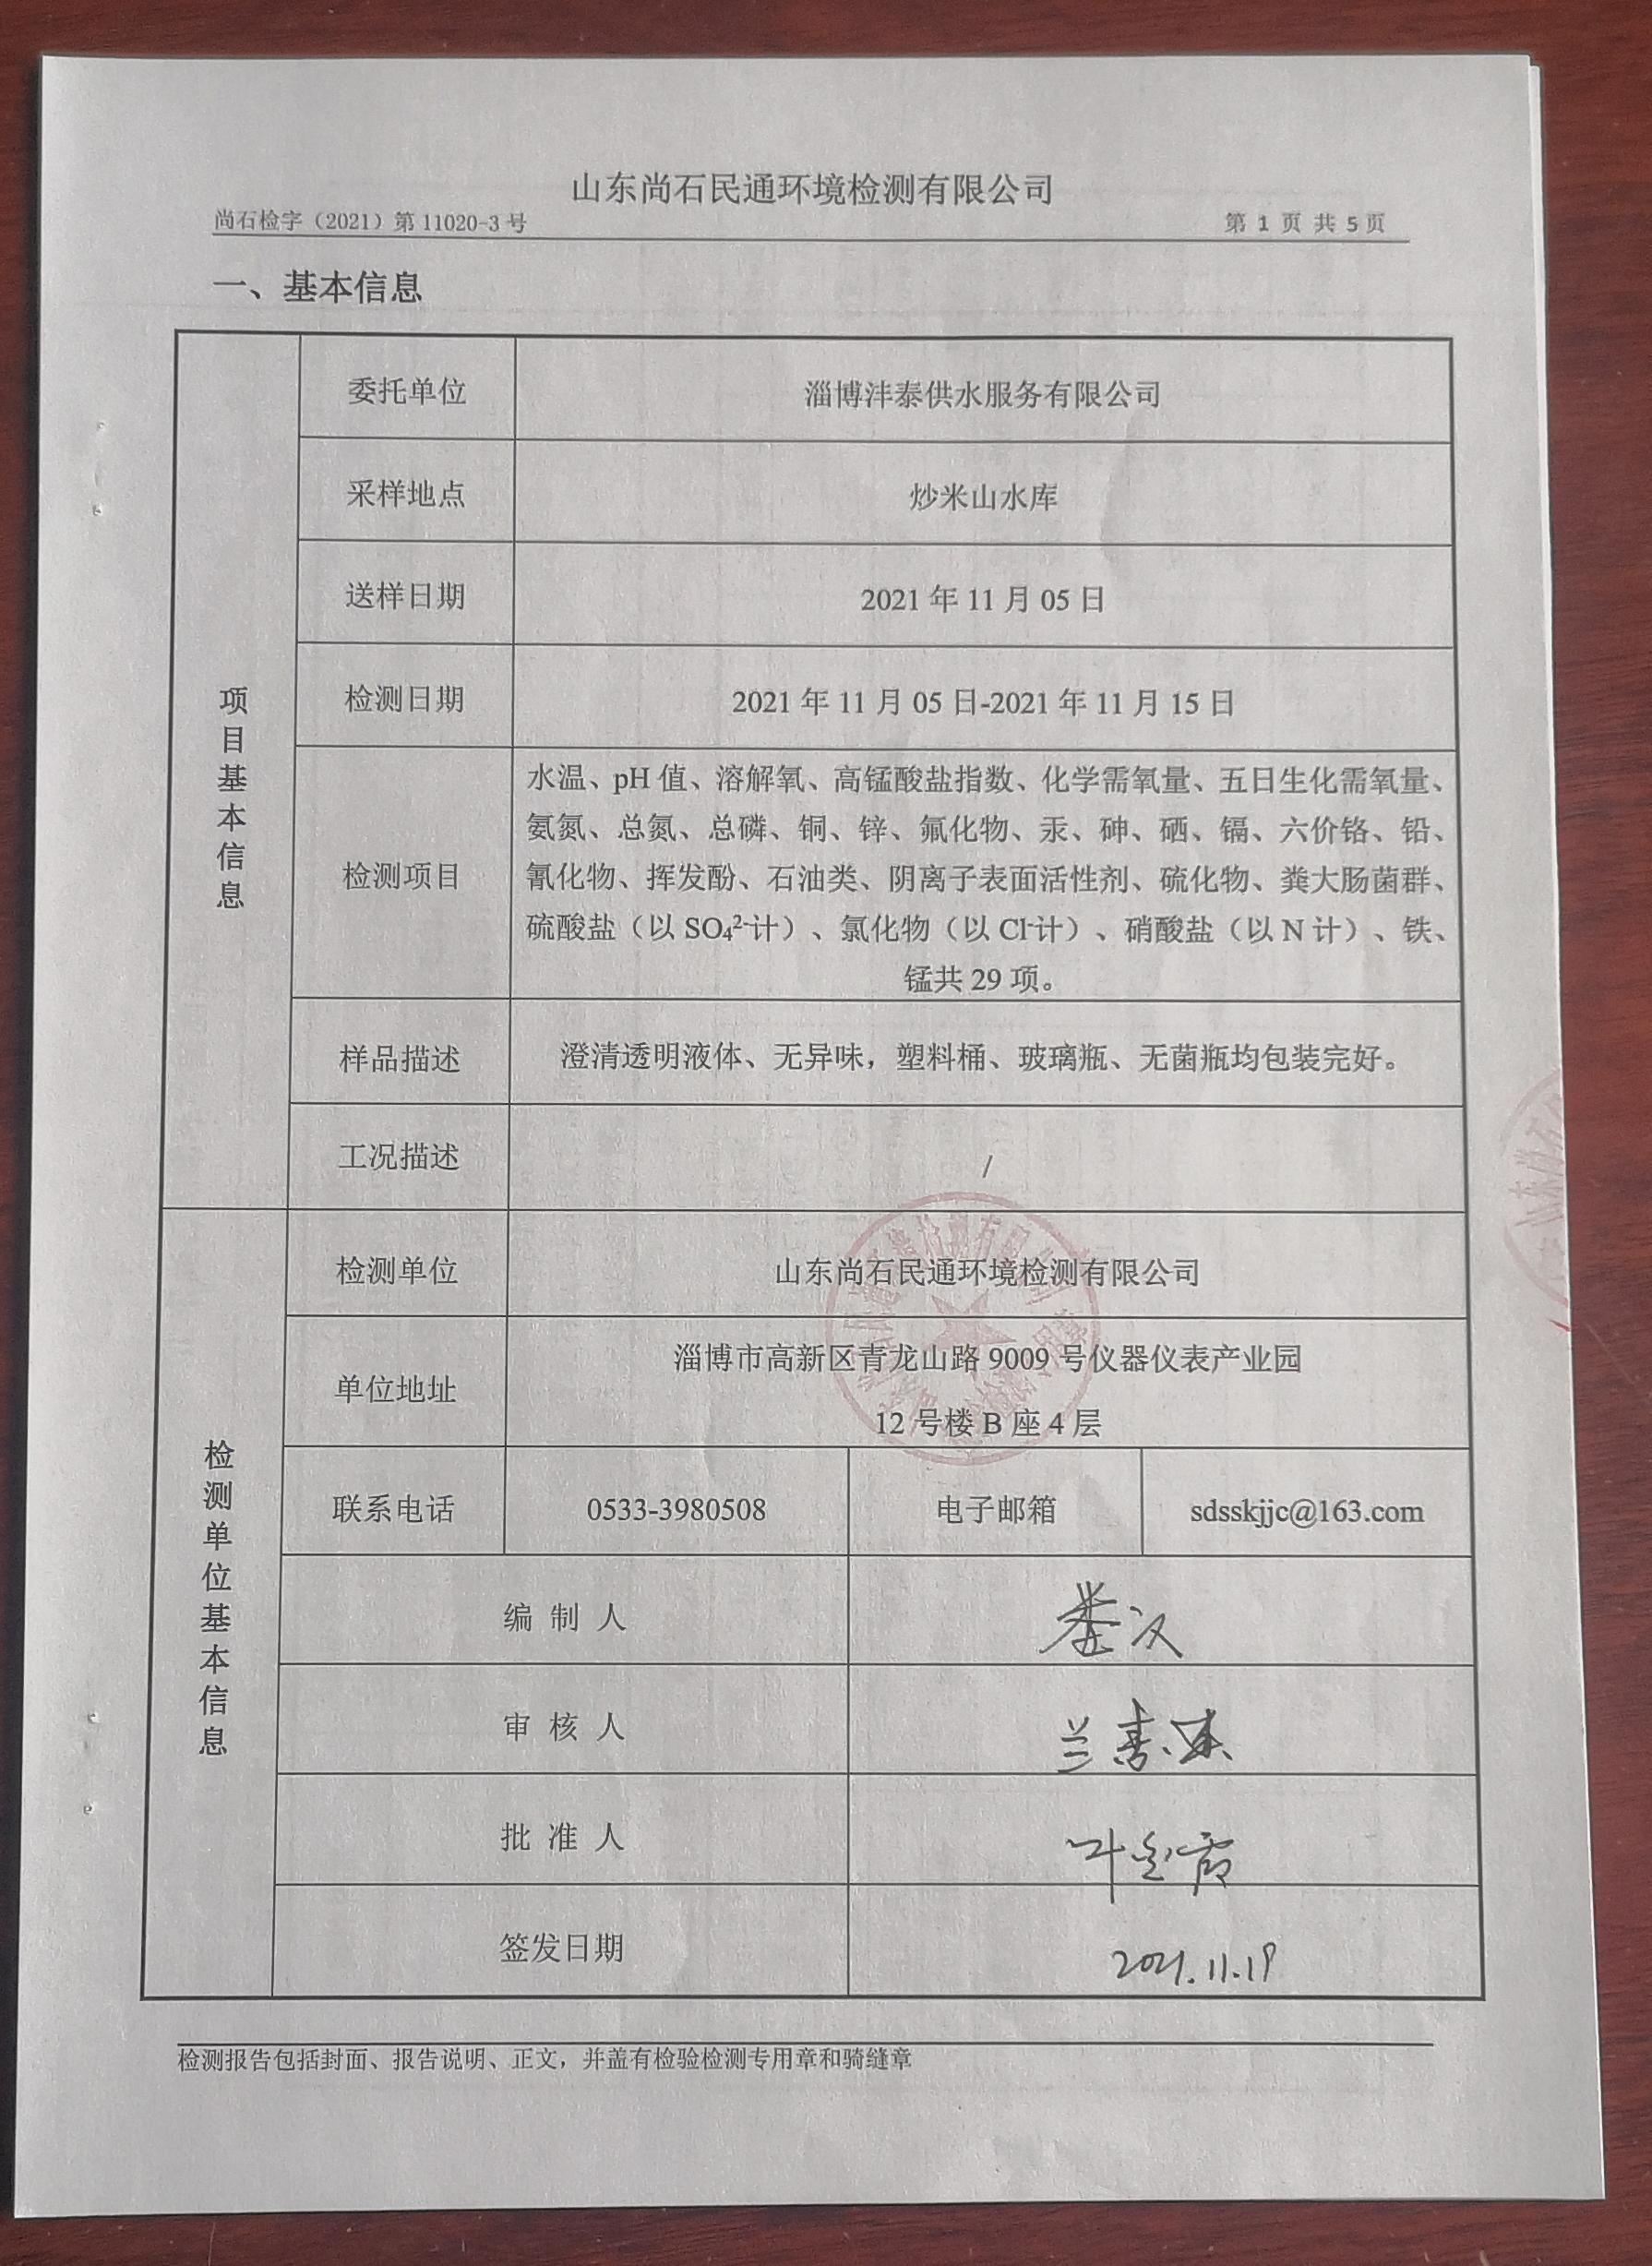 山东尚石民通环境检测有限公司
尚石检字（2021）第 11020-3 号
第 1 页 共 5 页
一、基本信息
项目基本信息
委托单位
淄博沣泰供水服务有限公司
采样地点
炒米山水库
送样日期
2021 年 11 月 05 日
检测日期
2021 年 11 月 05 日-2021 年 11 月 15 日
检测项目
水温、pH 值、溶解氧、高锰酸盐指数、化学需氧量、五日生化需氧量、
氨氮、总氮、总磷、铜、锌、氟化物、汞、砷、硒、镉、六价铬、铅、
氰化物、挥发酚、石油类、阴离子表面活性剂、硫化物、粪大肠菌群、
硫酸盐（以 SO₄²⁻计）、氯化物（以 Cl⁻计）、硝酸盐（以 N 计）、铁、
锰共 29 项。
样品描述
澄清透明液体、无异味，塑料桶、玻璃瓶、无菌瓶均包装完好。
工况描述
/
检测单位基本信息
检测单位
山东尚石民通环境检测有限公司
单位地址
淄博市高新区青龙山路 9009 号仪器仪表产业园
12 号楼 B 座 4 层
联系电话
0533-3980508
电子邮箱
sdsskjjc@163.com
编 制 人
审 核 人
批 准 人
签发日期
2021.11.19
检测报告包括封面、报告说明、正文，并盖有检验检测专用章和骑缝章